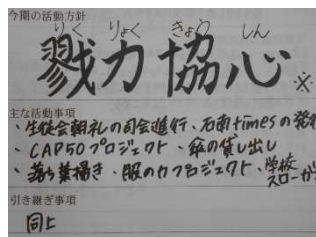 今期の活動方針
りく りょく きょう しん
戮力協心 ※
主な活動事項
・生徒会朝礼の司会進行・石南timesの発
・CAP50プロジェクト・傘の貸し出し
・落ち葉掃き・服のカプロジェクト・学校
スローガ
引き継ぎ事項
同上